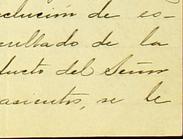 olución de es-
cultado de la
ducto del Señor
asientos, se le